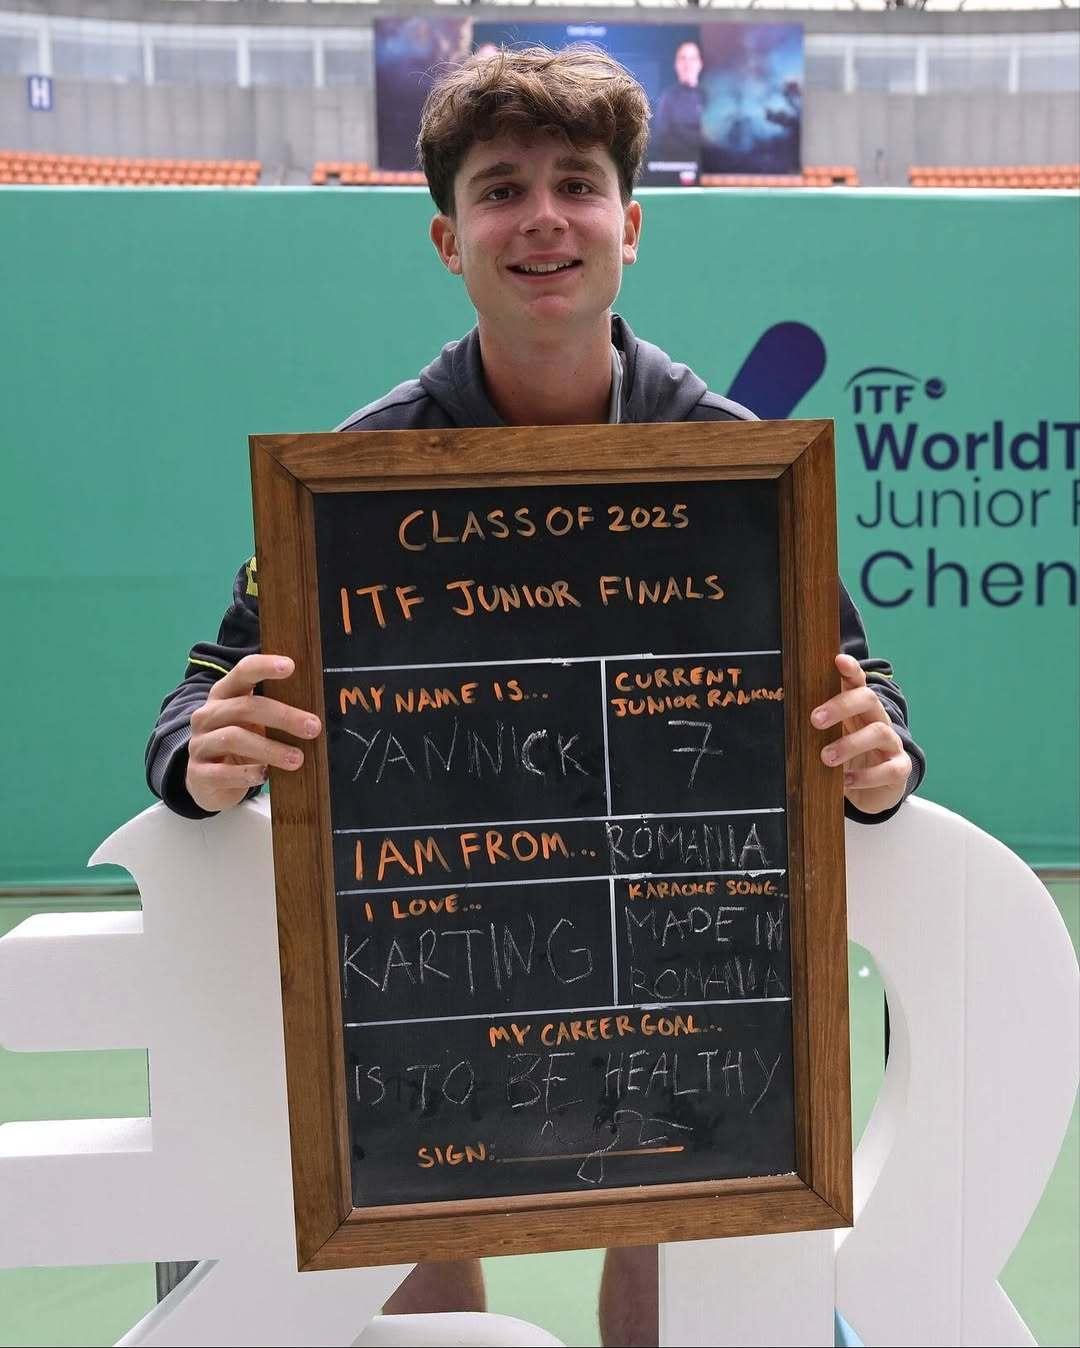 H
ITF
WorldT
Junior F
Chen
CLASS OF 2025
ITF JUNIOR FINALS
MY NAME IS...
YANNICK
CURRENT
JUNIOR RANKING
7
I AM FROM... ROMANIA
I LOVE...
KARTING
KARAOKE SONG...
MADE IN
ROMANIA
MY CAREER GOAL...
IS TO BE HEALTHY
SIGN: